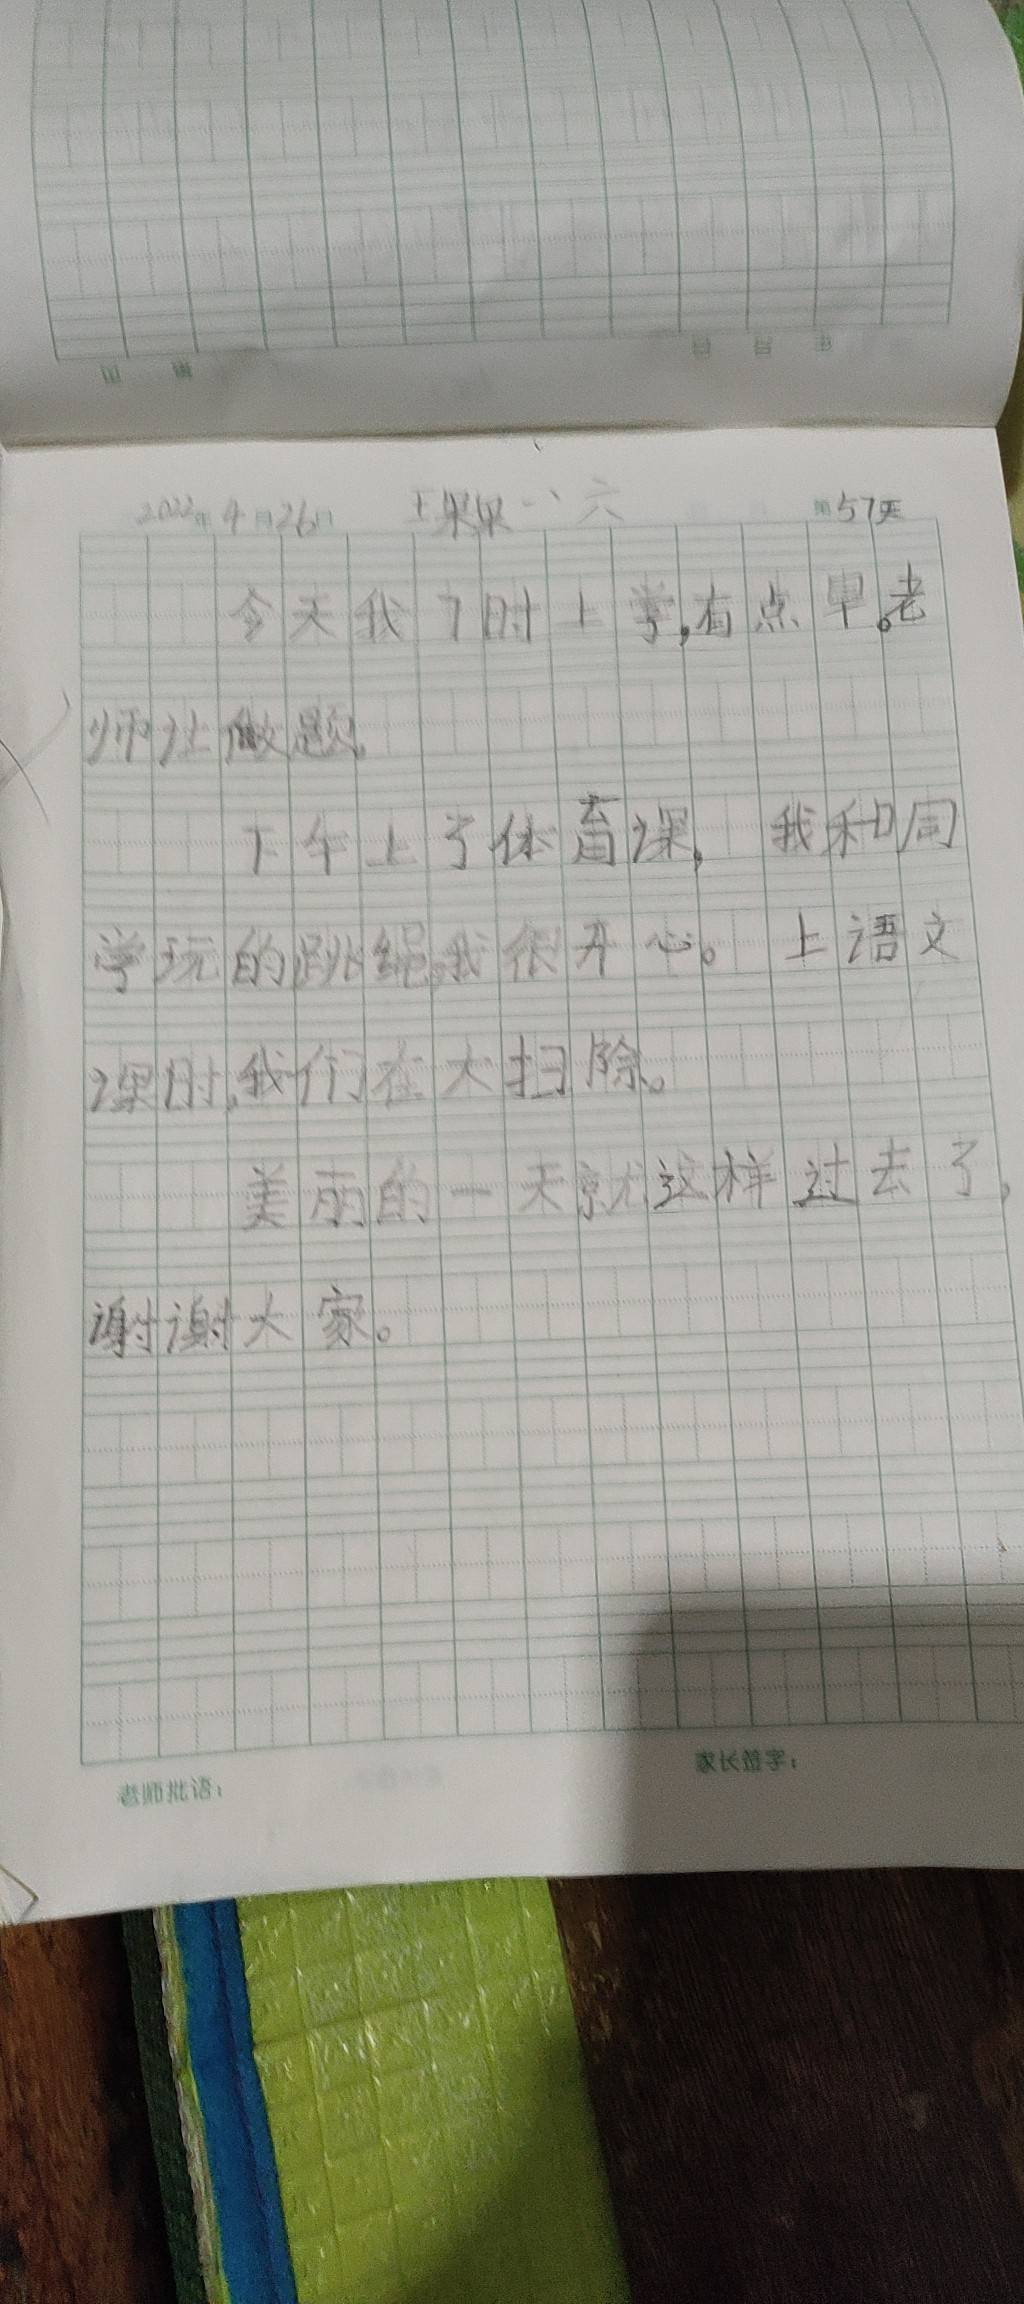 2022年4月26日 王果果 一、六 第57天
今天我7时上学,有点早。老
师让做题。
下午上了体育课, 我和同
学玩的跳绳,我很开心。 上语文
课时,我们在大扫除。
美丽的一天就这样过去了,
谢谢大家。
老师批语:
家长签字: